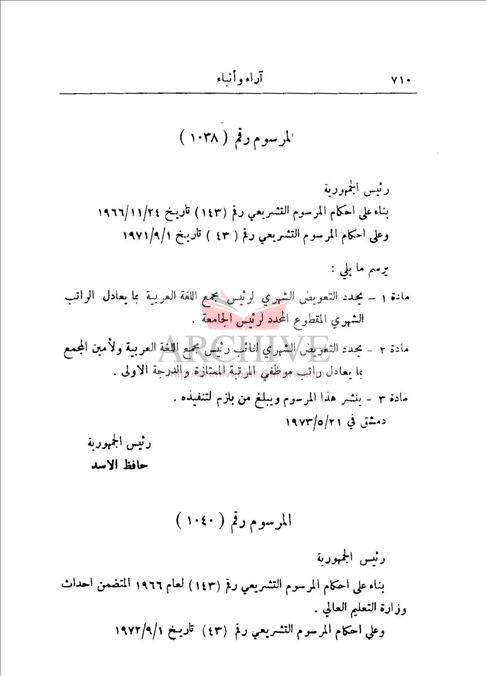 ٧١٠
آراء وأنباء
المرسوم رقم ( ١٠٣٨ )
رئيس الجمهورية
بناء على احكام المرسوم التشريعي رقم (١٤٣) تاريخ ١٩٦٦/١١/٢٤
وعلى احكام المرسوم التشريعي رقم ( ٤٣ ) تاريخ ١٩٧١/٩/١
يرسم ما يلي :
مادة ١ - يحدد التعويض الشهري لرئيس مجمع اللغة العربية بما يعادل الراتب
الشهري المقطوع المحدد لرئيس الجامعة .
مادة ٢ - يحدد التعويض الشهري لنائب رئيس مجمع اللغة العربية ولأمين المجمع
بما يعادل راتب موظفي المرتبة الممتازة والدرجة الاولى .
مادة ٣ - ينشر هذا المرسوم ويبلغ من يلزم لتنفيذه .
دمشق في ١٩٧٣/٥/٢١
رئيس الجمهورية
حافظ الاسد
المرسوم رقم ( ١٠٤٠ )
رئيس الجمهورية
بناء على احكام المرسوم التشريعي رقم (١٤٣) لعام ١٩٦٦ المتضمن احداث
وزارة التعليم العالي .
وعلى احكام المرسوم التشريعي رقم (٤٣) تاريخ ١٩٧٢/٩/١
ARCHIVE